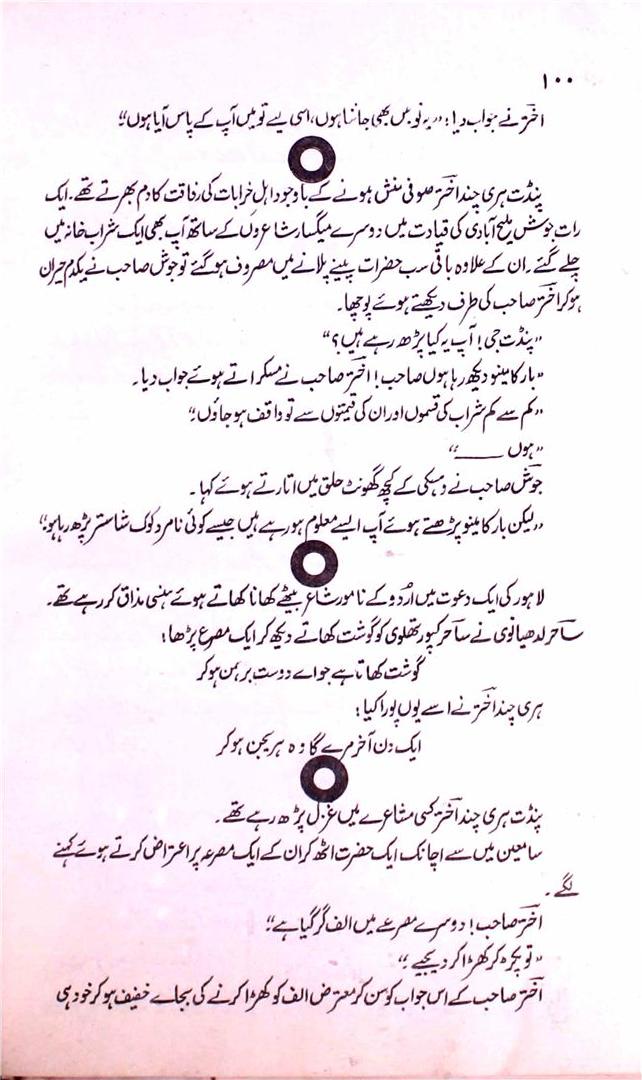 ۱۰۰
اختر نے جواب دیا: "یہ تو میں بھی جانتا ہوں، اسی لیے تو میں آپ کے پاس آیا ہوں"
پنڈت ہری چند اختر صوفی منش ہونے کے باوجود اہلِ خرابات کی رفاقت کا دم بھرتے تھے۔ ایک
رات جوش ملیح آبادی کی قیادت میں دوسرے میگسار شاعروں کے ساتھ آپ بھی ایک شراب خانہ میں
چلے گئے۔ ان کے علاوہ باقی سب حضرات پینے پلانے میں مصروف ہو گئے تو جوش صاحب نے یکدم حیران
ہو کر اختر صاحب کی طرف دیکھتے ہوئے پوچھا۔
"پنڈت جی! آپ یہ کیا پڑھ رہے ہیں؟"
"بار کا مینو دیکھ رہا ہوں صاحب! اختر صاحب نے مسکراتے ہوئے جواب دیا۔
"کم سے کم شراب کی قسموں اور ان کی قیمتوں سے تو واقف ہو جاؤں"
"ہوں ____"
جوش صاحب نے وہسکی کے کچھ گھونٹ حلق میں اتارتے ہوئے کہا۔
"لیکن بار کا مینو پڑھتے ہوئے آپ ایسے معلوم ہو رہے ہیں جیسے کوئی نامرد کوک شاستر پڑھ رہا ہو"
لاہور کی ایک دعوت میں اُردو کے نامور شاعر بیٹھے کھانا کھاتے ہوئے ہنسی مذاق کر رہے تھے۔
ساحر لدھیانوی نے ساحر کپورتھلوی کو گوشت کھاتے دیکھ کر ایک مصرع پڑھا:
گوشت کھاتا ہے جو اے دوست برہمن ہو کر
ہری چند اختر نے اسے یوں پورا کیا:
ایک دن آخر مرے گا وہ ہریجن ہو کر
پنڈت ہری چند اختر کسی مشاعرے میں غزل پڑھ رہے تھے۔
سامعین میں سے اچانک ایک حضرت اٹھ کر ان کے ایک مصرعہ پر اعتراض کرتے ہوئے کہنے
لگے۔
اختر صاحب! دوسرے مصرعے میں الف گر گیا ہے"
"تو پکڑ کر کھڑا کر دیجیے"
اختر صاحب کے اس جواب کو سن کر معترض الف کو کھڑا کرنے کی بجائے خفیف ہو کر خود ہی